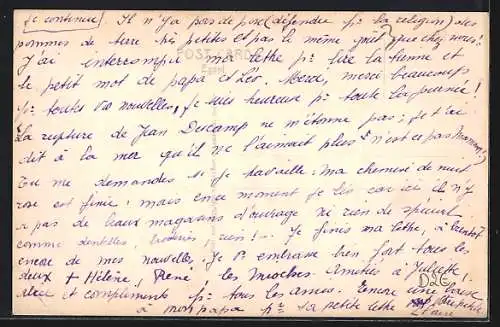 (je continue) Il n'y a pas de porc (défendu pr la religion) des
pommes de terre très petites et pas le même goût que chez nous!
POST CARD
J'ai interrompu ma lettre pr lire la tienne et
le petit mot de papa et Léo. Merci, merci beaucoup
pr toutes vos nouvelles, je suis heureuse pr toute la journée!
La rupture de Jean Descamp ne m'étonne pas; je t'ai
dit à la mer qu'il ne l'aimait plus, n'est ce pas Maman?
Tu me demandes si je travaille: ma chemise de nuit
rose est finie; mais en ce moment je lis car ici il n'y
a pas de beaux magasins d'ouvrage ni rien de spécial
comme dentelles, broderies, rien! Je finis ma lettre, à bientôt
encore de mes nouvelles. Je vs embrasse bien fort tous les
deux + Hélène, René, les Mioches. Amitiés à Juliette,
Alice et compliments pr tous les amis. Encore une baise
à mon papa pr sa petite lettre
D26